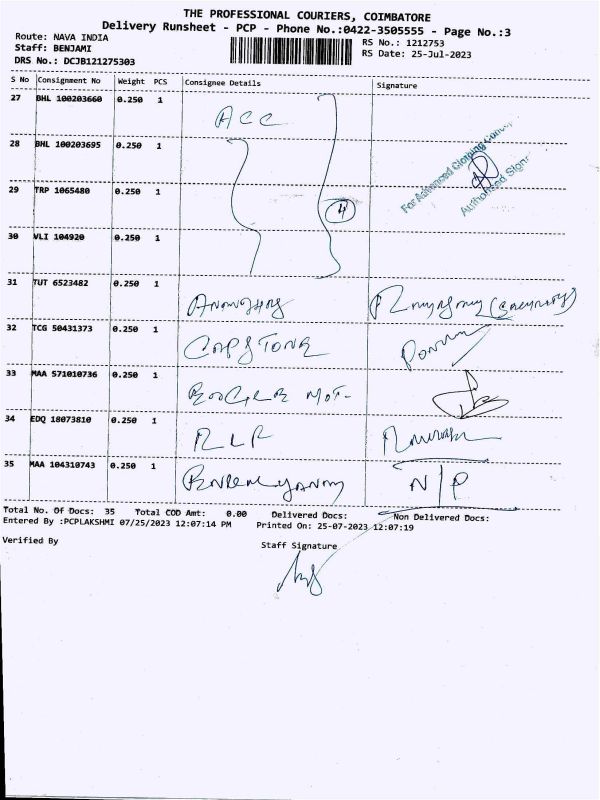 THE PROFESSIONAL COURIERS, COIMBATORE
Delivery Runsheet - PCP - Phone No.:0422-3505555 - Page No.:3
Route: NAVA INDIA
RS No.: 1212753
Staff: BENJAMI
RS Date: 25-Jul-2023
DRS No.: DCJB121275303
S No Consignment No Weight PCS Consignee Details Signature
27 BHL 100203660 0.250 1
ACC
28 BHL 100203695 0.250 1
For Advanced Clothing
Authorised
29 TRP 1065480 0.250 1
4
30 VLI 104920 0.250 1
31 TUT 6523482 0.250 1
32 TCG 50431373 0.250 1
CAPSTONE
33 MAA 571010736 0.250 1
34 EDQ 18073810 0.250 1
RLF
35 MAA 104310743 0.250 1
N/P
Total No. Of Docs: 35 Total COD Amt: 0.00 Delivered Docs: Non Delivered Docs:
Entered By :PCPLAKSHMI 07/25/2023 12:07:14 PM Printed On: 25-07-2023 12:07:19
Verified By Staff Signature